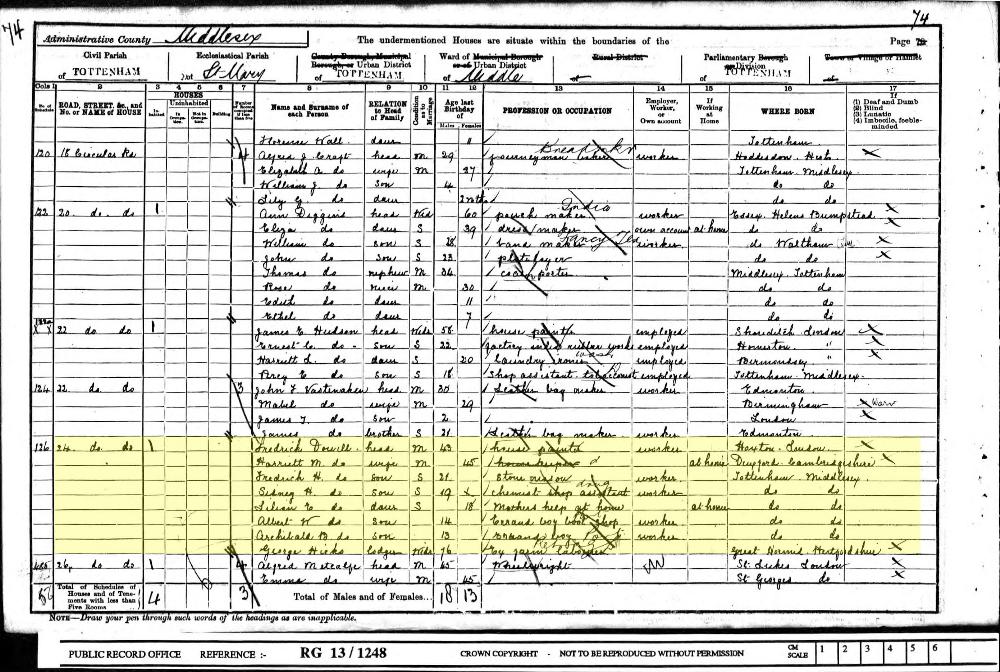 74
74
Administrative County Middlesex The undermentioned Houses are situate within the boundaries of the Page
Civil Parish of TOTTENHAM
Ecclesiastical Parish of St Mary
County Borough, Municipal Borough, or Urban District of TOTTENHAM
Ward of Municipal Borough or of Urban District of Middle
Rural District of
Parliamentary Borough or Division of TOTTENHAM
Town or Village or Hamlet of
Cols 1 2 3 4 5 6 7 8 9 10 11 12 13 14 15 16 17
No. of Schedule
ROAD, STREET, &c., and No. or NAME of HOUSE
HOUSES
In-habited
Uninhabited
In Occupation
Not in Occupation
Building
Number of Rooms occupied if less than five
Name and Surname of each Person
RELATION to Head of Family
Condition as to Marriage
Age last Birthday of
Males Females
PROFESSION OR OCCUPATION
Employer, Worker, or Own account
If Working at Home
WHERE BORN
If
(1) Deaf and Dumb
(2) Blind
(3) Lunatic
(4) Imbecile, feeble-minded
Florence Wall daur 11 Tottenham
120 18 Circular Rd 4 Alfred J. Craft head M 29 journeyman baker worker Hoddesdon Herts
Elizabeth A. do wife M 27 Tottenham Middlesex
William J. do son 4 do do
Lily E. do daur 2 mths do do
122 20 do do 1 Ann Diggins head Wid 60 pouch maker worker Essex Helens Bumpstead
Eliza do daur S 39 dress maker own account at home do do
William do son S 28 band maker worker do Waltham
John do son S 23 platelayer do do
Thomas do nephew M 34 coal porter Middlesex Tottenham
Rose do niece M 30 do do
Edith do daur 11 do do
Ethel do daur 7 do do
22 do do 1 James E. Hudson head Wid 58 house painter employed Shoreditch London
Ernest C. do son S 22 factory india rubber works employed Homerton "
Harriett L. do daur S 20 Laundry ironer employed Bermondsey "
Percy E. do son S 18 Shop assistant tobacconist employed Tottenham Middlesex
124 22 do do 3 John F. head M 30 Leather bag maker worker Edmonton
Mabel do wife M 29 Birmingham Warw
James T. do son 2 London
James do brother S 21 Leather bag maker worker Edmonton
126 24 do do 1 Fredrick Dowell head M 43 house painter worker Hoxton London
Harriett M. do wife M 45 housekeeper at home Duxford Cambridgeshire
Fredrich H. do son S 21 Stone mason worker Tottenham Middlesex
Sidney H. do son S 19 chemist shop assistant worker do do
Lilian E. do daur S 18 Mothers help at home at home do do
Albert W do son 14 Errand boy boot shop worker do do
Archibald B. do son 13 Errand boy worker do do
George Hicks lodger Wid 76 Ex farm laborer Great Hormead Hertfordshire
26 do do 1 4 Alfred Metcalfe head M 45 Wheelwright W St. Lukes London
Emma do wife M 45 St Georges do
Total of Schedules of Houses and of Tenements with less than Five Rooms 4 3 Total of Males and of Females... 18 13
NOTE—Draw your pen through such words of the headings as are inapplicable.
PUBLIC RECORD OFFICE REFERENCE :- RG 13/1248 CROWN COPYRIGHT - NOT TO BE REPRODUCED WITHOUT PERMISSION CM SCALE 1 2 3 4 5 6